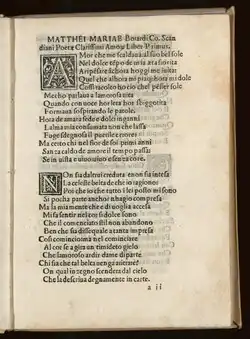 MATTHEI MARIAE Boiardi Co. Scan
diani Poetæ Clarissimi Amorū Liber Primus.
AMor che me scaldaua al suo bel sole
Nel dolce tēpo de mia eta fiorita
A ripēsare āchora hoggi me inuita
Quel che alhora mi piaq; hora mi dole
Cossi racolto ho cio chel pēser fole
Mecho parlaua a lamorosa uita
Quando con uoce hor leta hor sbigotita
Formaua sospirando le parole.
Hora de amara fede e dolci inganni
Lalma mia consumata non che lassa
Fuge sdegnosa il puerile errore
Ma certo chi nel fior de soi primi anni
Sanza caldo de amore il tempo passa
Se in uista e uiuo uiuo e senza core.
NOn fia daltrui creduta e non fia intesa
La celeste belta de che io ragiono
Poi che io che tutto i lei posto mi sono
Si pocha parte anchor nhagio compresa
Ma la mia mente che e di uoglia accesa
Mi fa sentir nel cor si dolce sono
Che il cominciato stil non abandono
Ben che sia disseguale a tanta impresa
Cosi comincio ma nel cominciare
Al cor se a gira un timideto gielo
Che lamoroso ardir da me diparte
Chi fia che tal belta uenga a ritrare?
On qual inzegno scendera dal cielo
Che la descriua degnamente in carte.
a ii